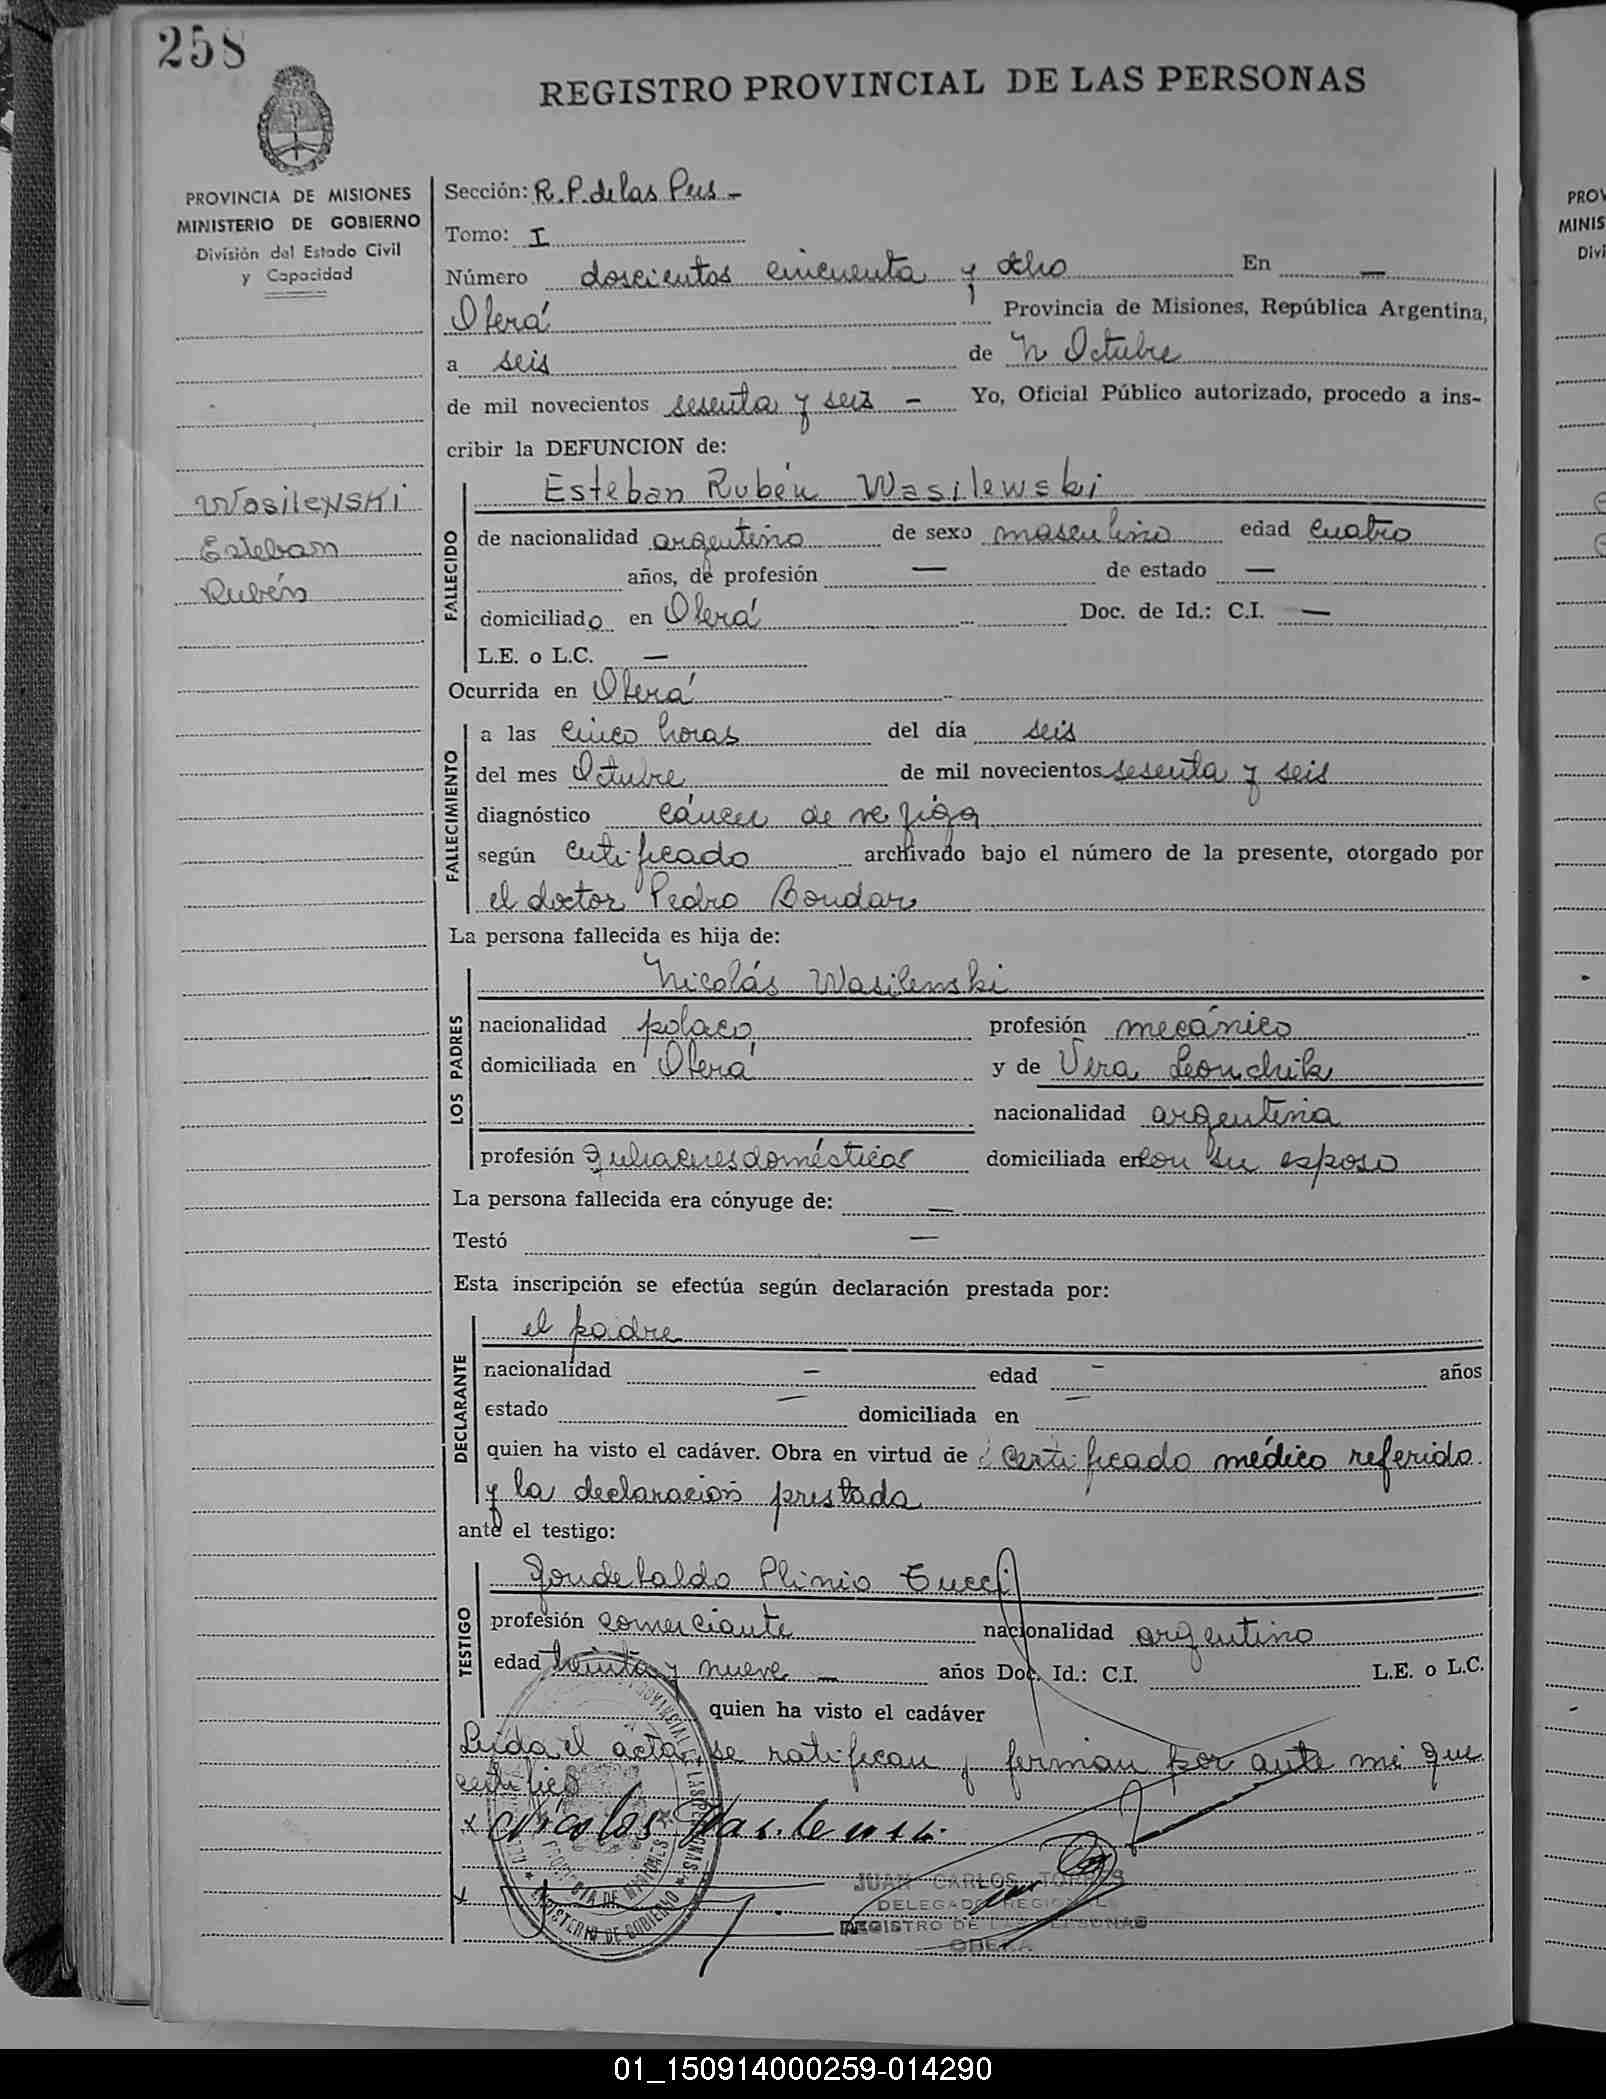 258
REGISTRO PROVINCIAL DE LAS PERSONAS
PROVINCIA DE MISIONES
MINISTERIO DE GOBIERNO
División del Estado Civil
y Capacidad
Wasilewski
Esteban
Rubén
Sección: R.P. de las Pers -
Tomo: I
Número doscientos cincuenta y ocho En —
Oberá Provincia de Misiones, República Argentina,
a seis de Octubre
de mil novecientos sesenta y seis — Yo, Oficial Público autorizado, procedo a ins-
cribir la DEFUNCION de:
FALLECIDO
Esteban Rubén Wasilewski
de nacionalidad argentino de sexo masculino edad cuatro
años, de profesión — de estado —
domiciliado en Oberá Doc. de Id.: C.I. —
L.E. o L.C. —
Ocurrida en Oberá
FALLECIMIENTO
a las cinco horas del día seis
del mes Octubre de mil novecientos sesenta y seis
diagnóstico cáncer de vejiga
según certificado archivado bajo el número de la presente, otorgado por
el doctor Pedro Bondar
La persona fallecida es hija de:
LOS PADRES
Nicolás Wasilewski
nacionalidad polaco profesión mecánico
domiciliada en Oberá y de Vera Leonchik
nacionalidad argentina
profesión quehaceres domésticos domiciliada en con su esposo
La persona fallecida era cónyuge de: —
Testó —
Esta inscripción se efectúa según declaración prestada por:
DECLARANTE
el padre
nacionalidad — edad — años
estado — domiciliada en —
quien ha visto el cadáver. Obra en virtud de certificado médico referido
y la declaración prestada
ante el testigo:
TESTIGO
Gondebaldo Plinio Tucci
profesión comerciante nacionalidad argentino
edad treinta y nueve — años Doc. Id.: C.I. L.E. o L.C.
quien ha visto el cadáver
Leída el acta, se ratifican y firman por ante mi que
certifico
x Nicolas Wasilewski
x
JUAN CARLOS TORRES
DELEGADO REGIONAL
REGISTRO DE LAS PERSONAS
OBERA
MINISTERIO DE GOBIERNO
PROVINCIA DE MISIONES
PROV
MINIS
Divi
01_150914000259-014290